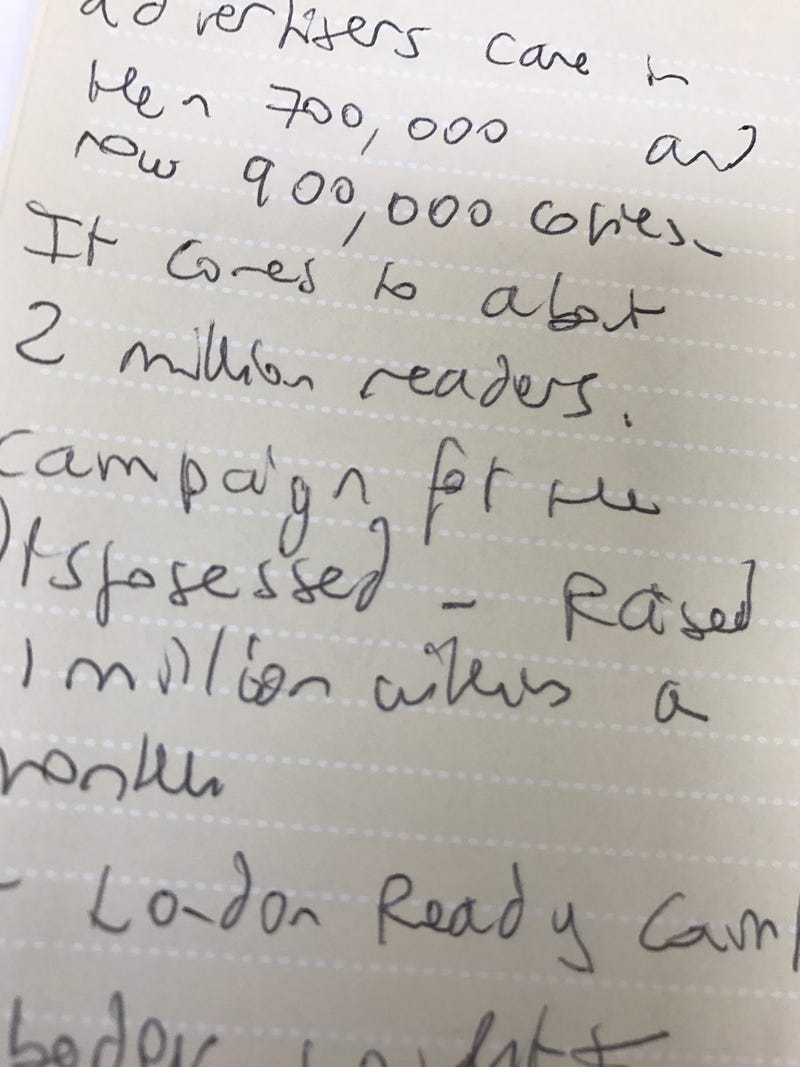 advertisers came in
then 700,000 and
now 900,000 copies.
It comes to about
2 million readers.
Campaign for the
Dispossessed - Raised
1 million within a
month
- London Ready Camp